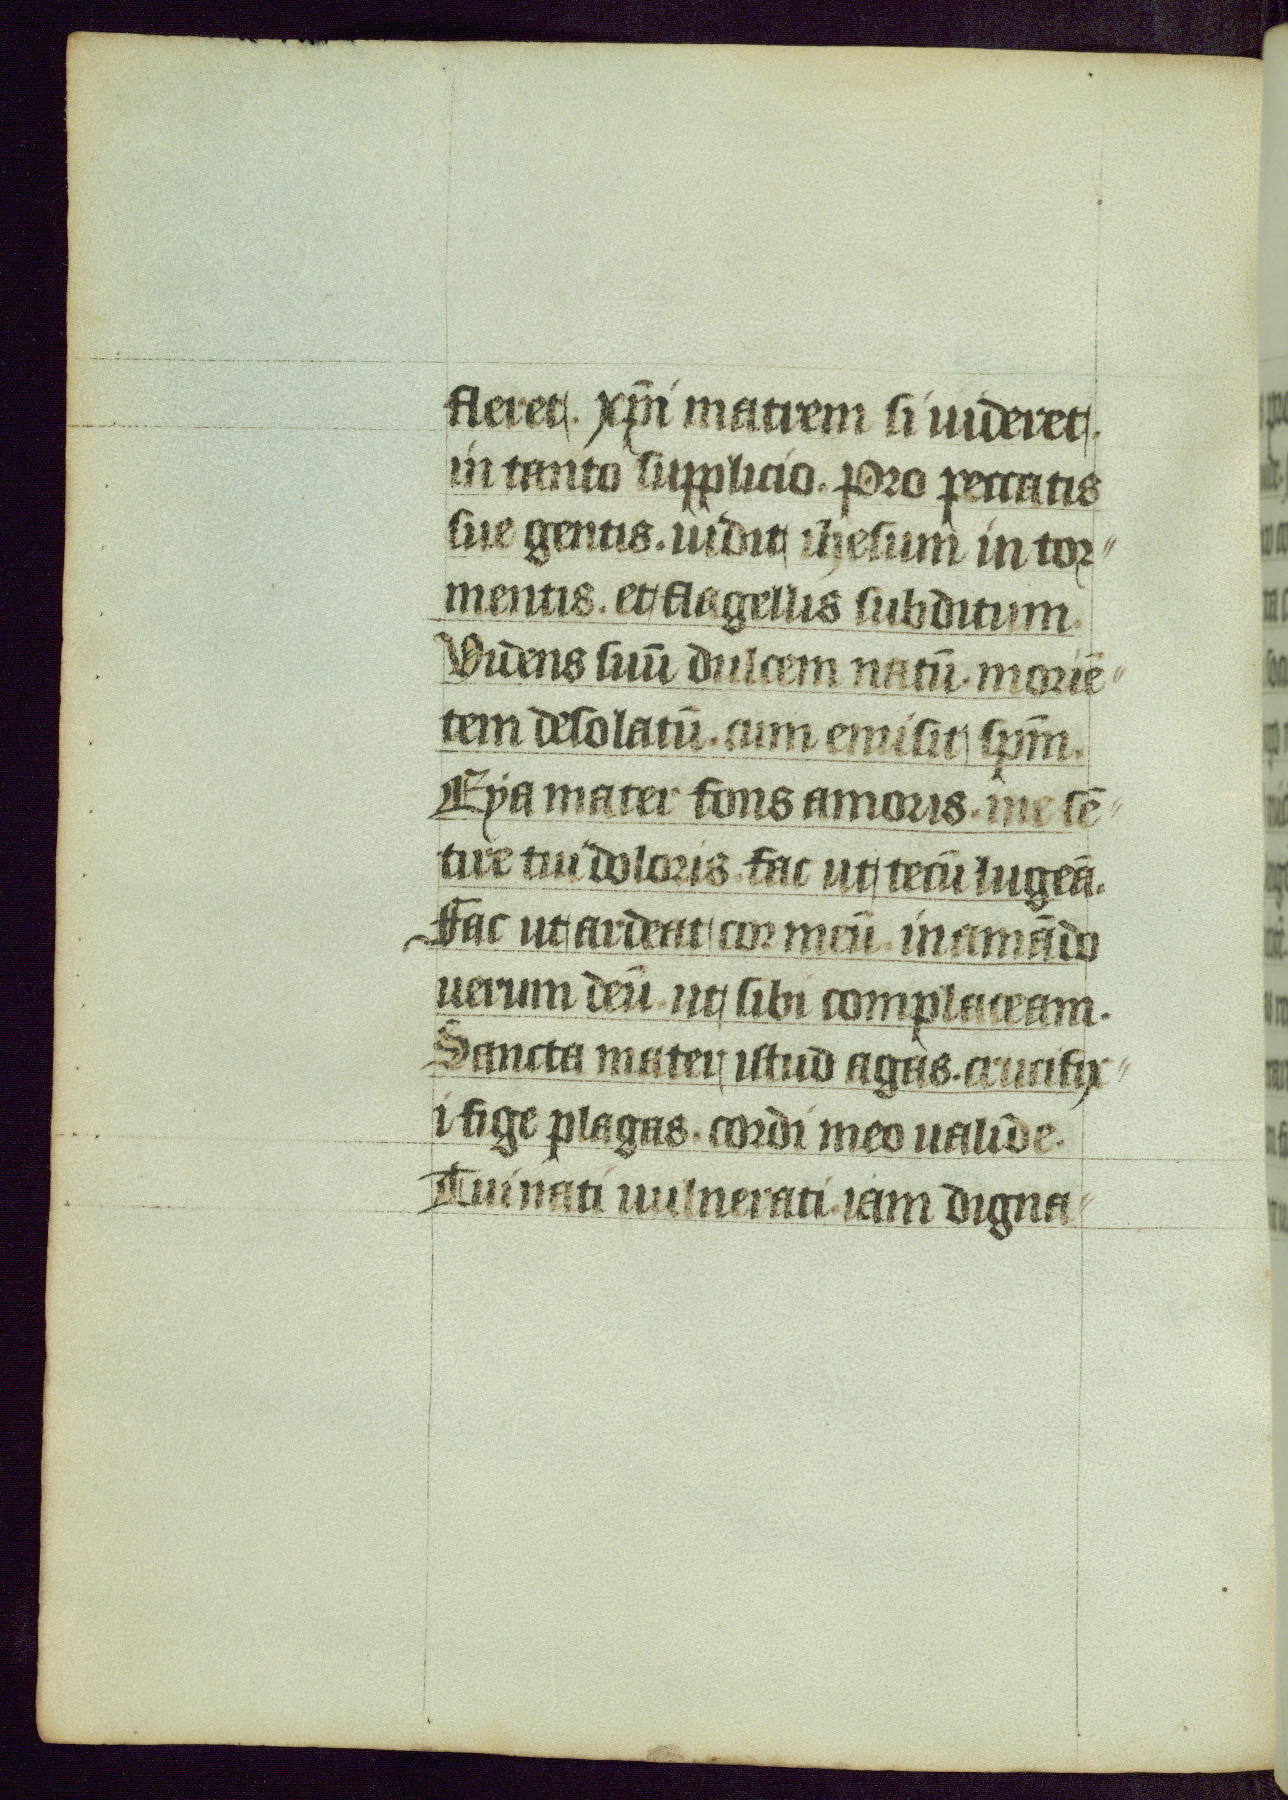 fleret. xp̄i matrem si uideret.
in tanto supplicio. Pro peccatis
sue gentis. uidit ihesum in tor〃
mentis. et flagellis subditum.
Videns suū dulcem natū. moriē〃
tem desolatū. cum emisit sp̄m.
Eya mater fons amoris. me sē〃
tire tui doloris. fac ut tecū lugeā.
Fac ut ardeat cor meū. in amādo
uerum deū. ut sibi complaceam.
Sancta mater istud agas. crucifix〃
i fige plagas. cordi meo ualide.
Tui nati uulnerati. iam digna〃